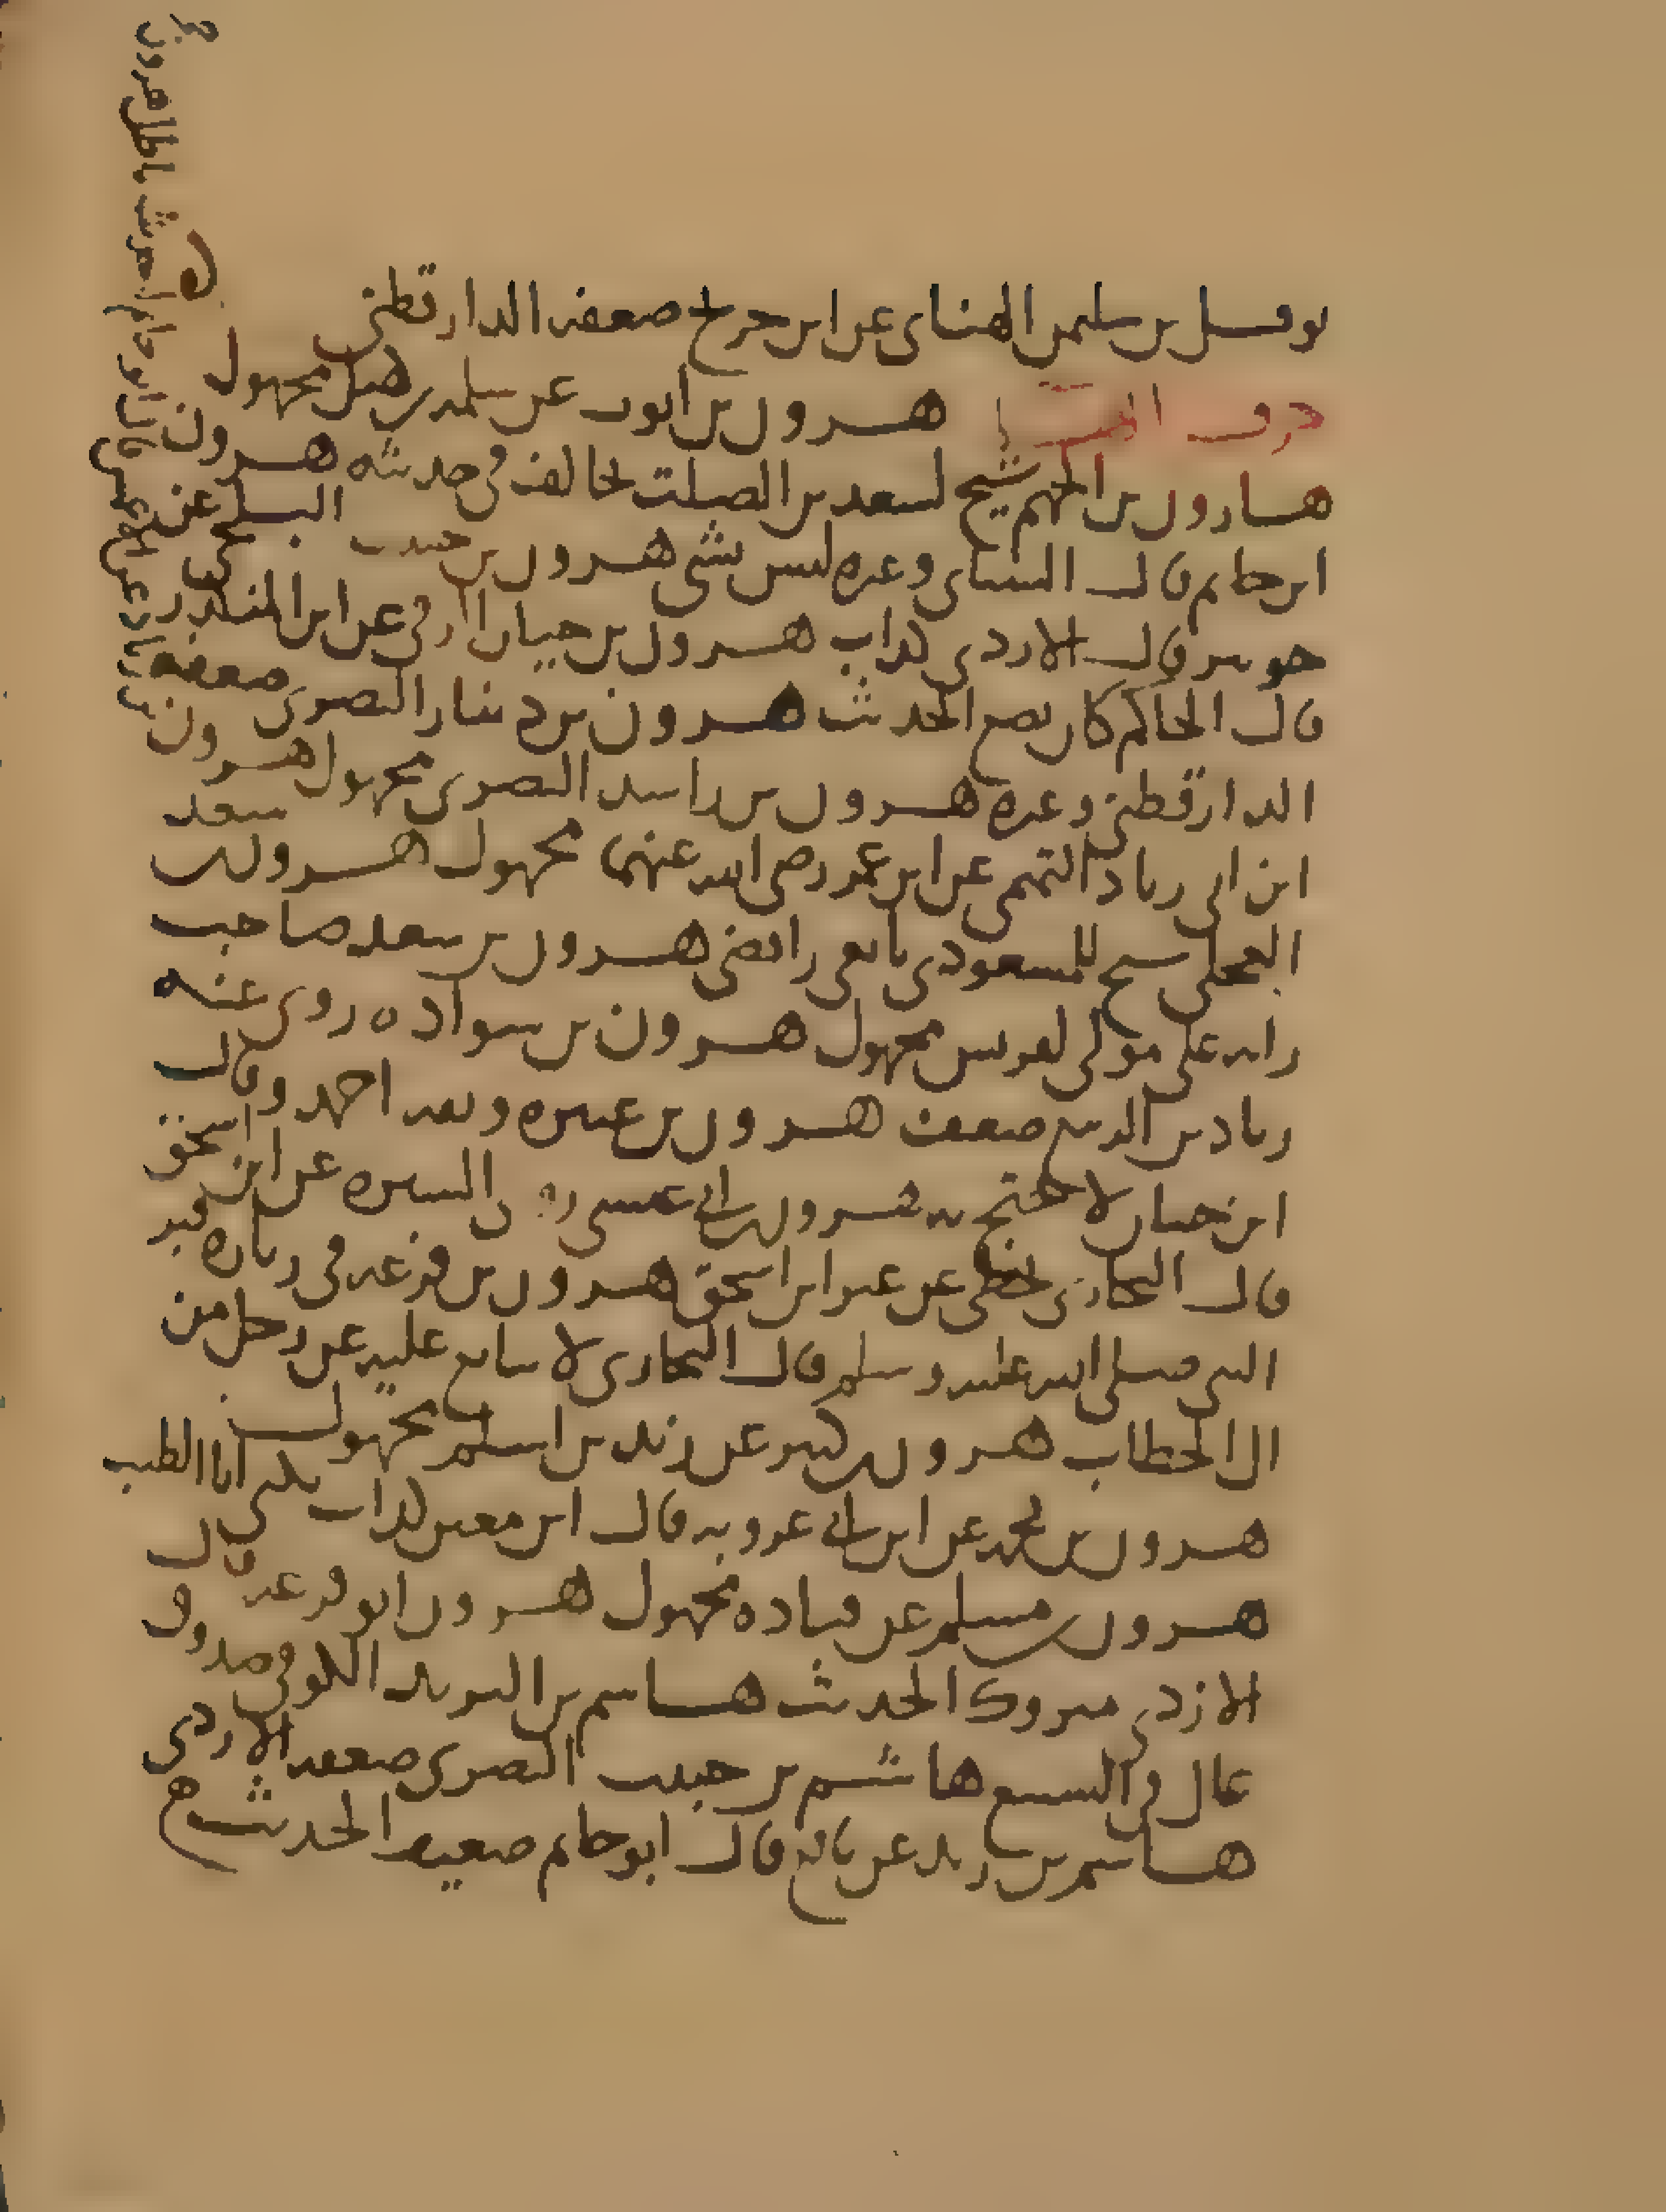 نوفل بن سليمن الهنائي عن ابن جريج ضعفه الدارقطني
حرف الهاء هرون بن ايوب عن سلمه بن كهيل مجهول
هارون بن الجهم شيخ لسعد بن الصلت يخالف في حديثه هرون
ابن حاتم قال النسائي وغيره ليس بشي هرون بن حبيب البلخي عن
جويبر قال الازدي كذاب هرون بن حيان الرقي عن ابن المنكدر
قال الحاكم كان يضع الحديث هرون بن دينار البصري ضعفه
الدارقطني وغيره هرون بن راشد البصري مجهول هرون
ابن ابي زياد التيمي عن ابن عمر رضي الله عنهما مجهول هرون بن سعد
العجلي شيخ للمسعودي رافضي هرون بن سعد صاحب
رايه علي مولى لقريش مجهول هرون بن سواده روى عنه
زياد بن الربيع ضعف هرون بن عنتره وثقه احمد وقال
ابن حبان لا يحتج به هرون بن ابي عيسى روى السيره عن ابن اسحق
قال البخاري يخطي عن غير ابن اسحق هرون بن قزعه في زياره قبر
النبي صلى الله عليه وسلم قال البخاري لا يتابع عليه عن رجل من
ال الخطاب هرون بن كثير عن زيد بن اسلم مجهول
هرون بن محمد عن ابن ابي عروبه قال ابن معين كذاب يكنى ابا الطيب
هرون بن مسلم عن قتاده مجهول هرون ابو قزعه قال
الازدي متروك الحديث هاشم بن البريد الكوفي صدوق
غال في التشيع هاشم بن حبيب البصري ضعفه الازدي
هاشم بن زيد عن نافع قال ابو حاتم ضعيف الحديث
قال ابو حاتم